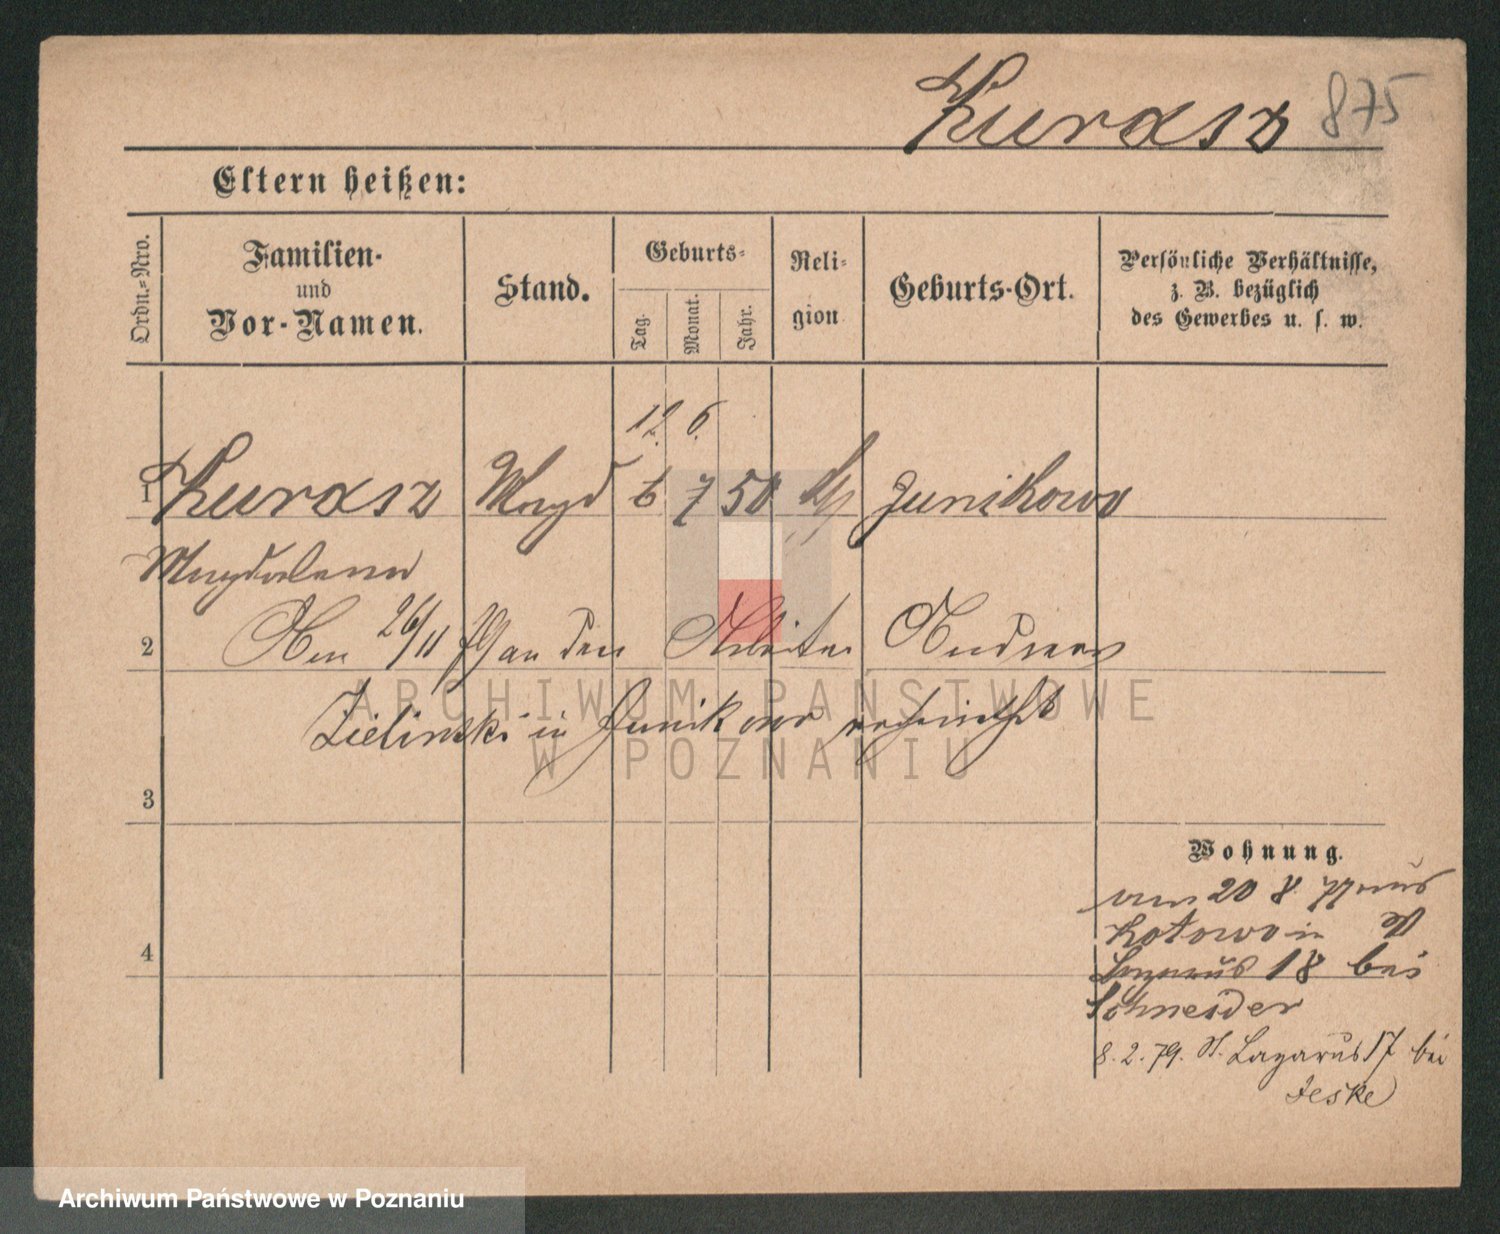 Kurasz 875
Eltern heißen:
Ordn.=Nro.
Familien-
und
Vor-Namen.
Stand.
Geburts=
Tag.
Monat.
Jahr.
Reli=
gion
Geburts-Ort.
Persönliche Verhältnisse,
z. B. bezüglich
des Gewerbes u. s. w.
12. 6.
1 Kurasz Magd 6 7 50 Junikowo
Magdalena
2 Am 26/11 79 an den Arbeiter Andreas
Zielinski in Junikowo verheirathet
ARCHIWUM PAŃSTWOWE
W POZNANIU
3
Wohnung.
20 8 77 aus
Kotowo in St
4 Lazarus 18 bei
Schneider
8. 2. 79. St. Lazarus 17 bei
Jeske
Archiwum Państwowe w Poznaniu